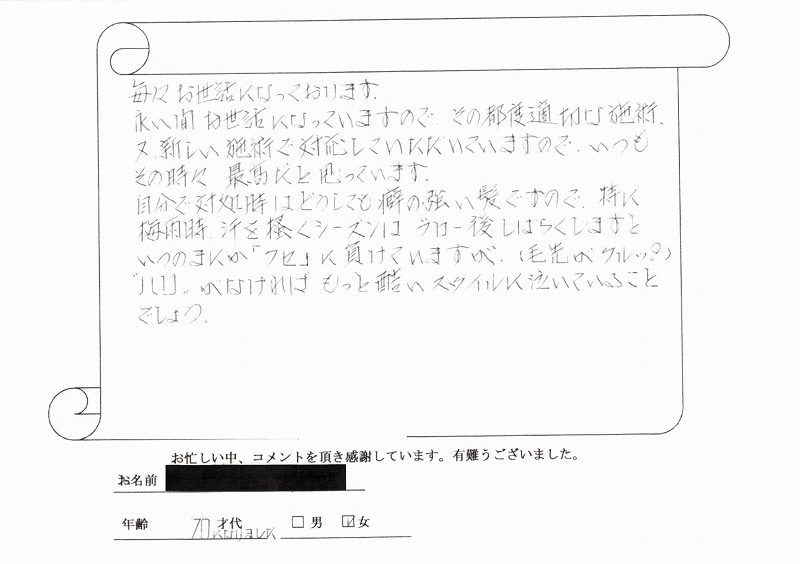 毎々お世話になっております。
永い間お世話になっていますので、その都度適切な施術、
又、新しい施術で対応していただいていますので、いつも
その時々、最高だと思っています。
自分で対処時はどうしても癖の強い髪ですので、特に
梅雨時、汗を掻くシーズンは ブロー後しばらくしますと
いつのまにか「クセ」に負けていますが、(毛先がクルッ?)
がなければ もっと酷いスタイルに泣いていること
でしょう。
お忙しい中、コメントを頂き感謝しています。有難うございました。
お名前
年齢 70才代 になりました □男 ☑女